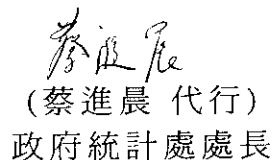 蔡進晨
(蔡進晨 代行)
政府統計處處長